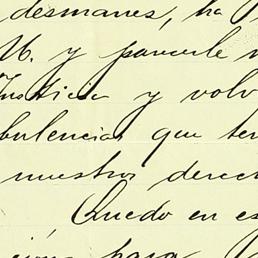 desmanes, ha
U. y parecele
Justicia y volv
bulencias que ten
nuestros derec
Quedo en es
ción para